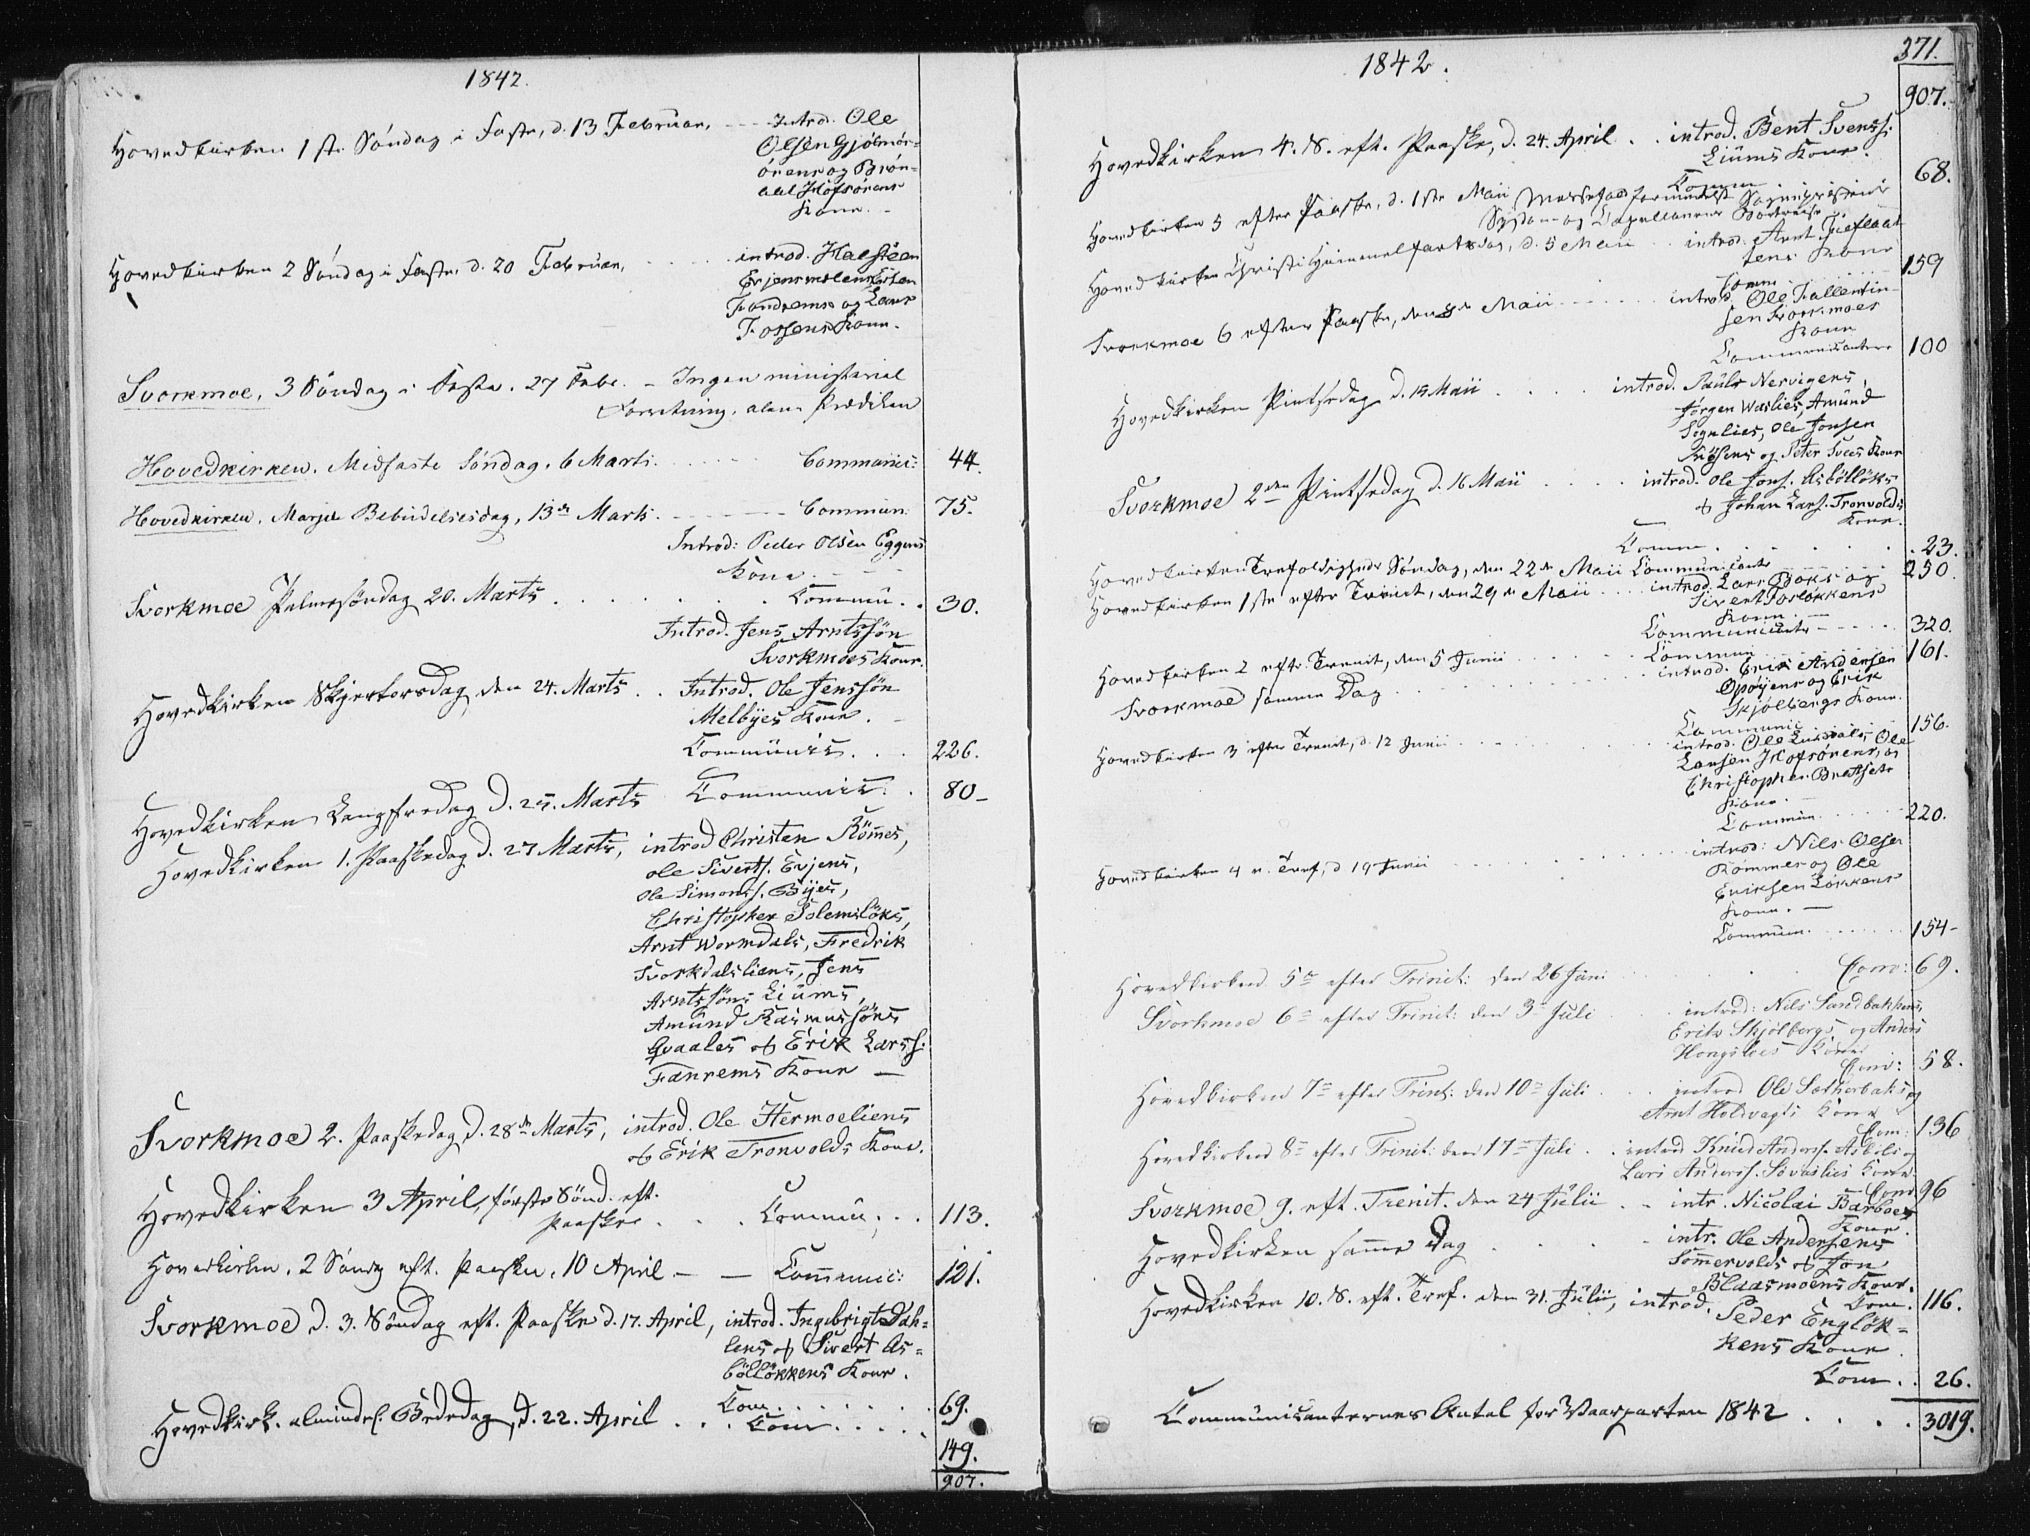 1842.
Hovedkirken 1ste Søndag i Faste, d. 13 Februar, Introd. Ole
Olsen Gjølmør-
ørens og Brøn-
dal Hofsørens
Kone.
Hovedkirken 2 Søndag i Faste, d. 20 Februar, introd. Halsteen
Evjensmoens Esten
Fandrems og Lars
Fossens Kone.
Svorkmoe, 3 Søndag i Faste. 27 Febr. - Ingen ministerial
Forretning, alene Prædiken
Hovedkirken. Midfaste Søndag, 6 Marts. Communic: 44.
Hovedkirken. Mariæ Bebudelsesdag, 13de Marts. Commun: 75.
Introd: Peder Olsen Eggens
Kone
Svorkmoe Palmesøndag 20. Marts Commu. 30.
Introd. Jens Arntssøn
Svorkmoes Kone.
Hovedkirken Skjertorsdag den 24. Marts Introd. Ole Jenssøn
Melbyes Kone.
Communic. 226.
Hovedkirken Langfredag d. 25. Marts Communic. 80-
Hovedkirken 1. Paaskedag d. 27 Marts, introd Christen Rømes,
Ole Siverts. Evjens,
Ole Simonss. Byes,
Christopher Solemsløks,
Arnt Wormdals, Fredrik
Svorkdalsliens, Jens
Arntssøns Liums,
Amund Rasmussøns
Qvaales og Erik Larss:
Fanrems Kone —
Svorkmoe 2. Paaskedag d. 28de Marts, introd. Ole Hermoeliens
og Erik Tronvolds Kone.
Hovedkirken 3 April, første Sønd. eft.
Paaske Commu. 113.
Hovedkirken. 2 Søndg eft. Paaske, 10 April — — Communic: 121.
Svorkmoe d. 3. Søndag eft. Paaske d. 17. April, introd. Ingebrigt Dah-
lens og Sivert As-
bølløkkens Kone.
Com 69.
Hovedkirk. almindel. Bededag, d. 22. April Com 149.
907.
1842.
371.
907.
Hovedkirken 4. S. eft. Paaske, d. 24. April introd. Bent Svenss.
Liums Kone.
Comm 68.
Hovedkirken 5 efter Paaske, d. 1ste Maii Messefald formedelst Sognepræstens
Sygdom og Capellanens Bortreise
Hovedkirken Christi Himmelfartsdag, d. 5 Maii introd. Arnt
Kone
Comm 159
Svorkmoe 6 efter Paaske, den 8de Maii introd. Ole Fallentin-
sen Svorkmoes
Kone
Communicanter 100
Hovedkirken Pintsedag d. 15 Maii introd. Pauls Nervigens,
Jørgen Waslies, Amund
Sognlies, Ole Jonsen
og Peter Svees Kone
Svorkmoe 2den Pintsedag d. 16 Maii introd. Ole Jons. Asbølløks
og Johan Lars. Tronvolds
Kone.
Comm 23.
Hovedkirken Trefoldigheds Søndag, den 22de Maii Communicanter 250.
Hovedkirken 1ste efter Trinit, den 29de Maii introd. Lars Boks og
Sivert Forløkkens
Kone
Communicanter 320.
Hovedkirken 2 eft. Trenit, den 5 Junii Commun 161.
Svorkmoe samme Dag introd. Erik Andersen
Opøyens og Erik
Skjølbergs Kone.
Communic 156.
Hovedkirken 3 efter Trenit, d. 12 Junii introd. Ole Ole
Larsen Hofsørens, og
Christopher Bratsets
Kone.
Commun 220.
Hovedkirken 4 e. Tref, d 19 Junii introd: Nils Olsen
Rømmes og Ole
Eriksen Løkkens
Kone. —
Commun. 154-
Hovedkirken 5te efter Trinit: den 26 Juni Com: 69.
Svorkmoe 6te efter Trinit: den 3die Juli introd: Nils Sandbakkens
Eriks Skjølbergs og Anders
Hongslies Kone
Com: 58.
Hovedkirken 7de efter Trinit: den 10de Juli introd Ole Sætherbaks og
Arnt Holtvagts Kone
Com: 136
Hovedkirken 8de efter Trinit: den 17de Juli introd Knud Anderss. Asbøls og
Lars Anderss. Sovaslies Kone
Com 96
Svorkmoe 9. eft. Trenit. den 24 Julii intr. Nicolai Barboes
Kone.
Hovedkirken samme Dag intr. Ole Andersens
Sommervolds og Jon
Blaasmoens Kone.
Com. 116.
Hovedkirken 10. S. eft. Tref. den 31. Julii, introd. Peder Engløk-
kens Kone
Com. 26.
Communicanternes Antal for Vaarparten 1842 3019.